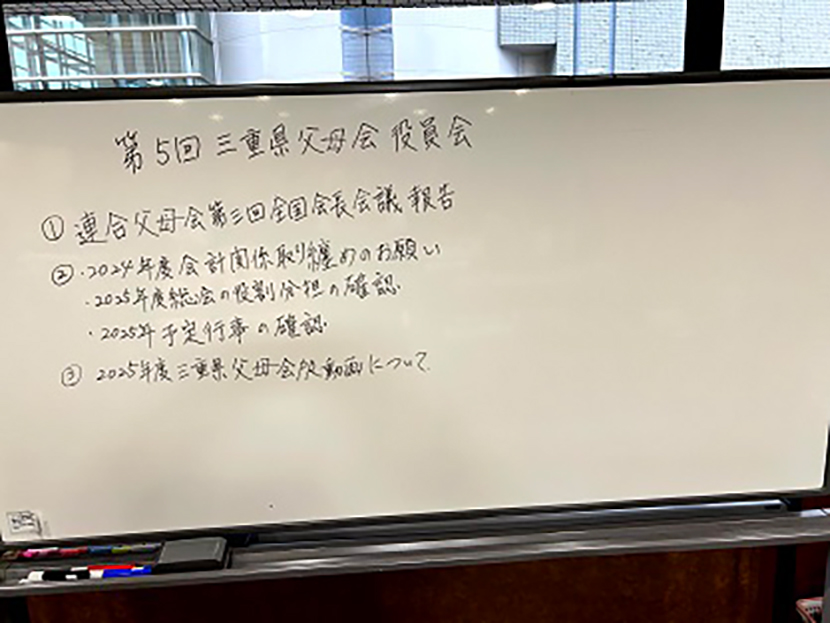 第5回 三重県父母会 役員会
① 連合父母会第三回全国会長会議 報告
② ・2024年度会計関係取り纏めのお願い
・2025年度総会の役割分担の確認
・2025年予定行事の確認
③ 2025年度三重県父母会PR動画について